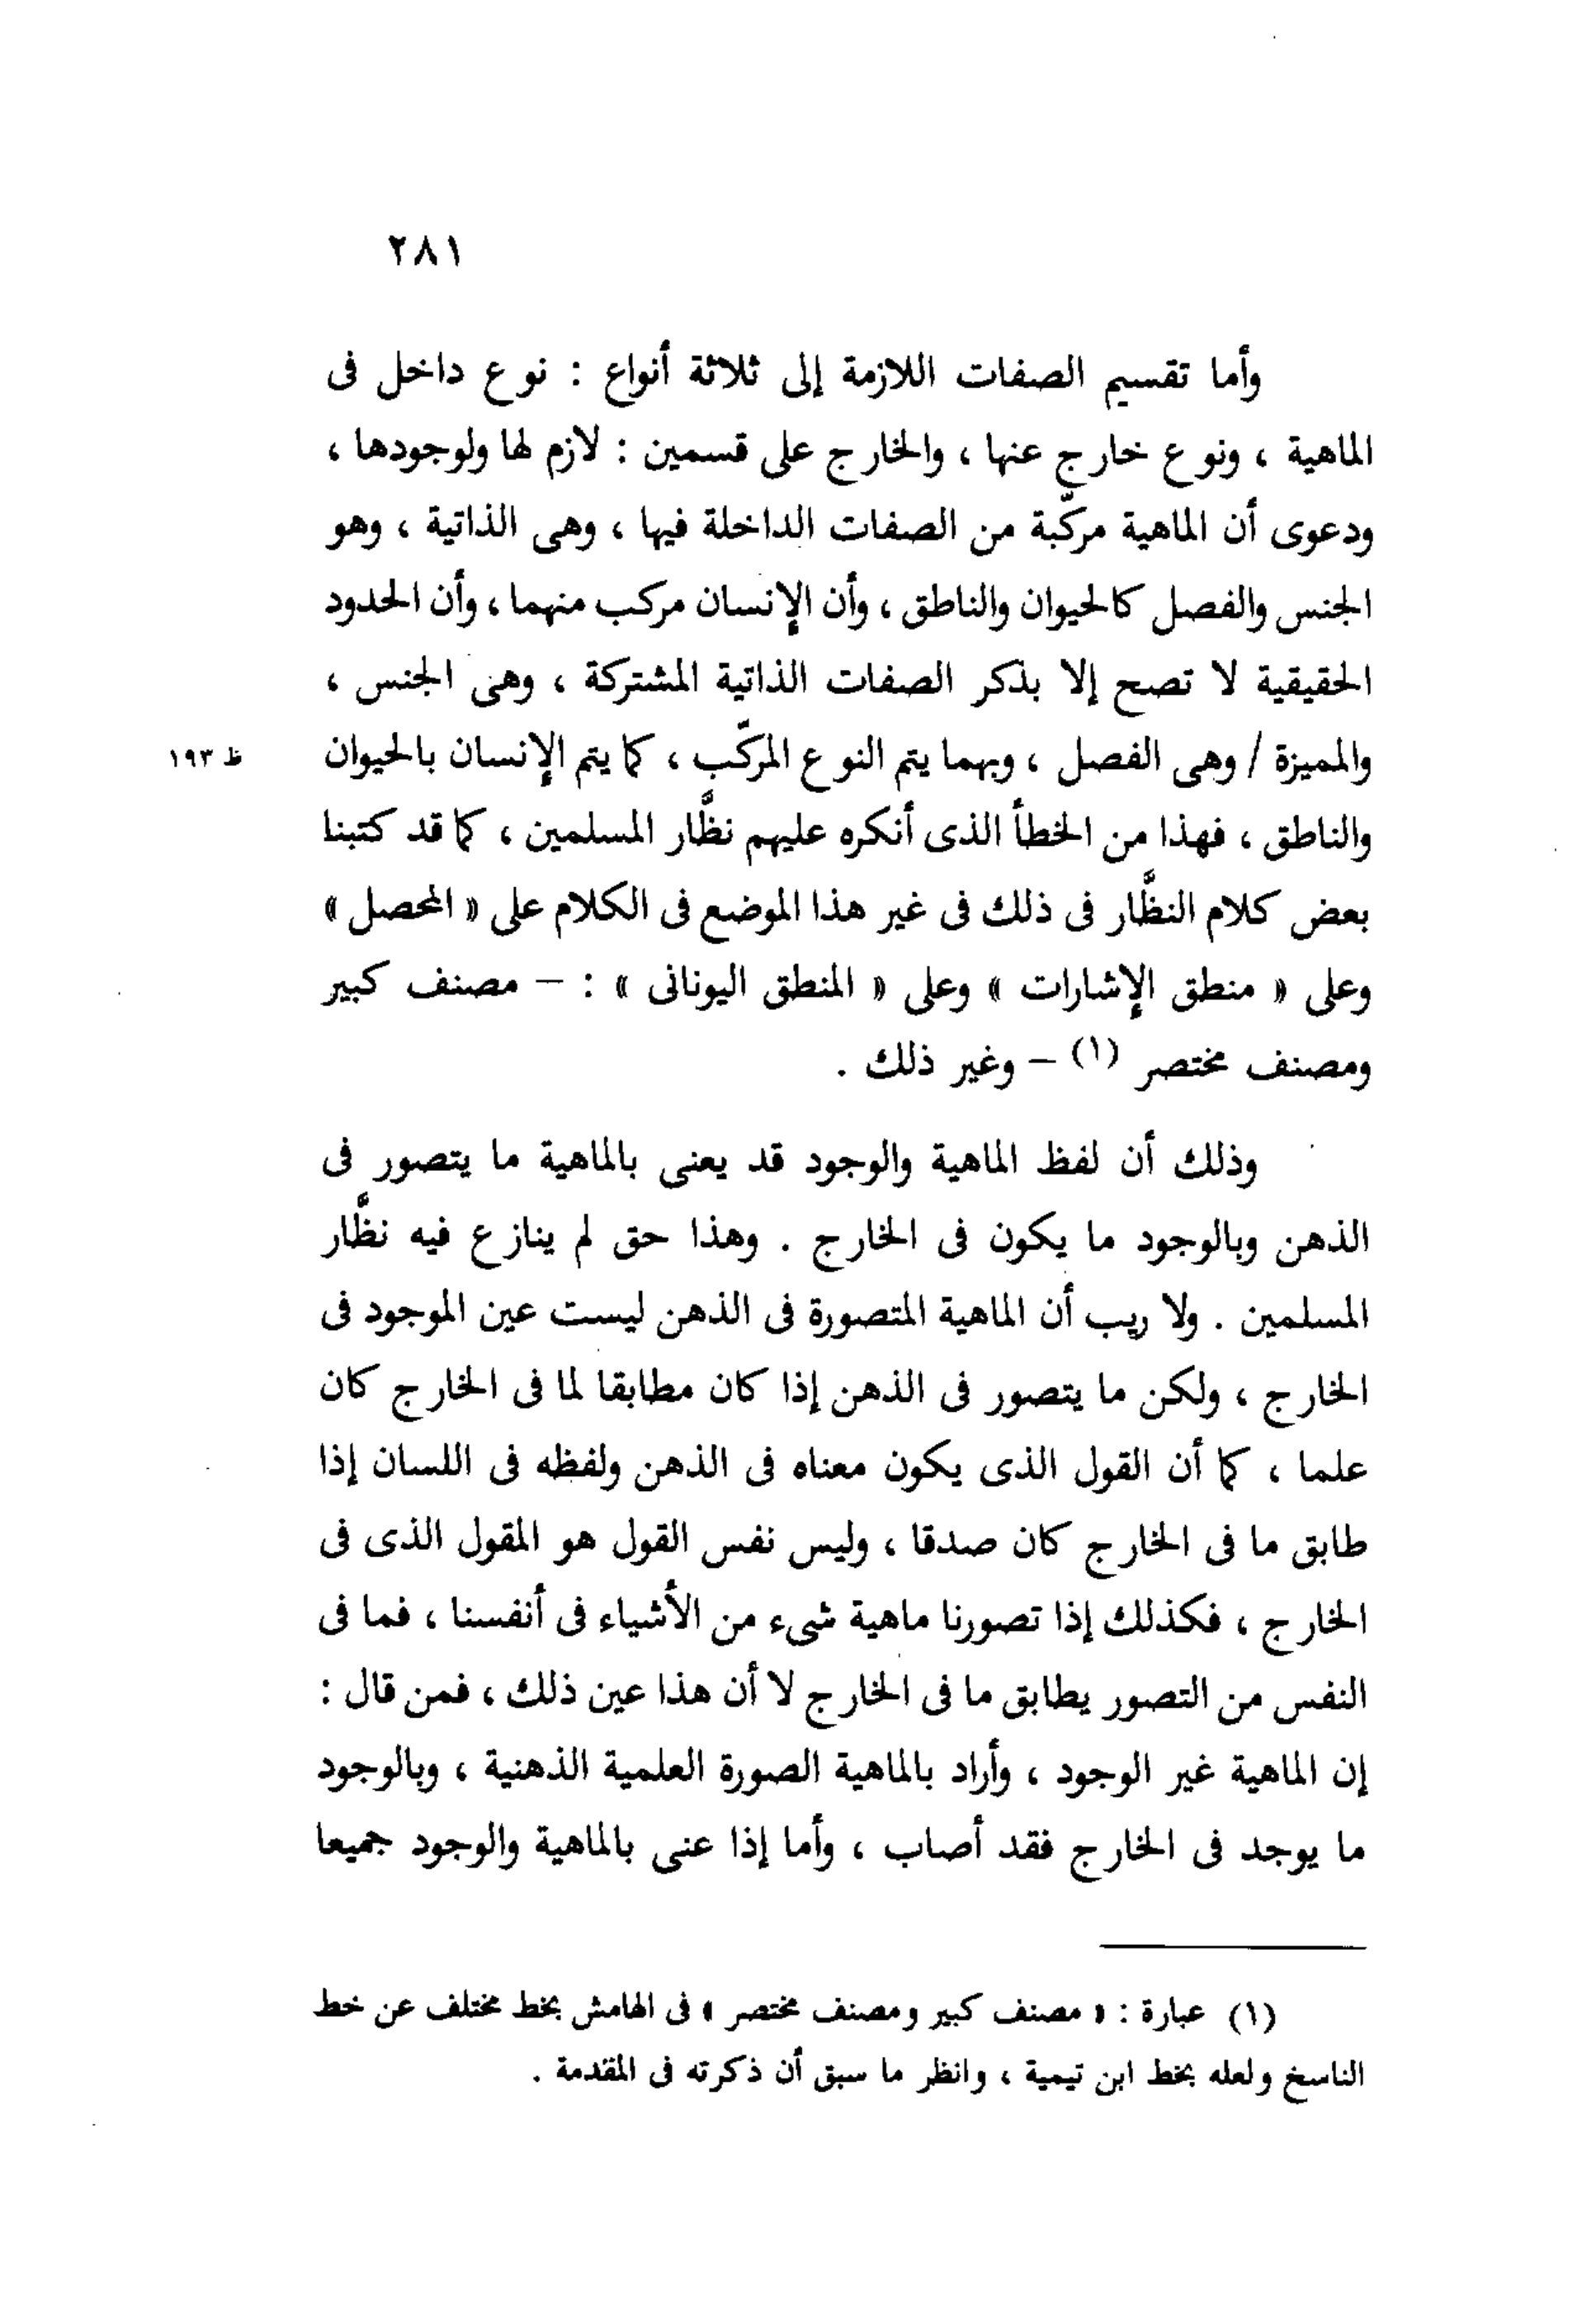 ٢٨١
وأما تقسيم الصفات اللازمة إلى ثلاثة أنواع : نوع داخل فى
الماهية ، ونوع خارج عنها ، والخارج على قسمين : لازم لها ولوجودها ،
ودعوى أن الماهية مركّبة من الصفات الداخلة فيها ، وهى الذاتية ، وهو
الجنس والفصل كالحيوان والناطق ، وأن الإنسان مركب منهما ، وأن الحدود
الحقيقية لا تصح إلا بذكر الصفات الذاتية المشتركة ، وهى الجنس ،
والمميزة / وهى الفصل ، وبهما يتم النوع المركّب ، كما يتم الإنسان بالحيوان
ظ ١٩٣
والناطق ، فهذا من الخطأ الذى أنكره عليهم نظَّار المسلمين ، كما قد كتبنا
بعض كلام النظَّار فى ذلك فى غير هذا الموضع فى الكلام على « المحصل »
وعلى « منطق الإشارات » وعلى « المنطق اليونانى » : – مصنف كبير
ومصنف مختصر (١) – وغير ذلك .
وذلك أن لفظ الماهية والوجود قد يعنى بالماهية ما يتصور فى
الذهن وبالوجود ما يكون فى الخارج . وهذا حق لم ينازع فيه نظَّار
المسلمين . ولا ريب أن الماهية المتصورة فى الذهن ليست عين الموجود فى
الخارج ، ولكن ما يتصور فى الذهن إذا كان مطابقا لما فى الخارج كان
علما ، كما أن القول الذى يكون معناه فى الذهن ولفظه فى اللسان إذا
طابق ما فى الخارج كان صدقا ، وليس نفس القول هو المقول الذى فى
الخارج ، فكذلك إذا تصورنا ماهية شىء من الأشياء فى أنفسنا ، فما فى
النفس من التصور يطابق ما فى الخارج لا أن هذا عين ذلك ، فمن قال :
إن الماهية غير الوجود ، وأراد بالماهية الصورة العلمية الذهنية ، وبالوجود
ما يوجد فى الخارج فقد أصاب ، وأما إذا عنى بالماهية والوجود جميعا
(١) عبارة : « مصنف كبير ومصنف مختصر » فى الهامش بخط مختلف عن خط
الناسخ ولعله بخط ابن تيمية ، وانظر ما سبق أن ذكرته فى المقدمة .